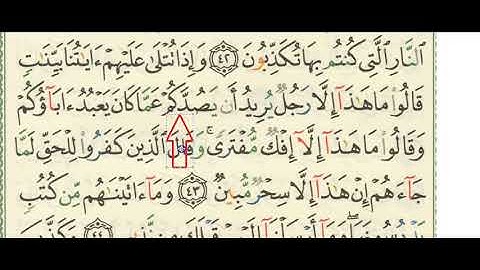 ٱلنَّارِ ٱلَّتِى كُنتُم بِهَا تُكَذِّبُونَ ٤٢ وَإِذَا تُتْلَىٰ عَلَيْهِمْ ءَايَٰتُنَا بَيِّنَٰتٍ
قَالُوا۟ مَا هَٰذَآ إِلَّا رَجُلٌ يُرِيدُ أَن يَصُدَّكُمْ عَمَّا كَانَ يَعْبُدُ ءَابَآؤُكُمْ
وَقَالُوا۟ مَا هَٰذَآ إِلَّآ إِفْكٌ مُّفْتَرًى ۚ وَقَالَ ٱلَّذِينَ كَفَرُوا۟ لِلْحَقِّ لَمَّا
جَآءَهُمْ إِنْ هَٰذَآ إِلَّا سِحْرٌ مُّبِينٌ ٤٣ وَمَآ ءَاتَيْنَٰهُم مِّن كُتُبٍ
وَمَآ أَرْسَلْنَآ ٤٤ وَكَذَّبَ